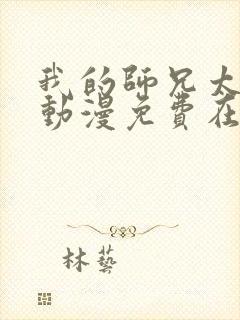 我的師兄太
動漫免費在
林藝